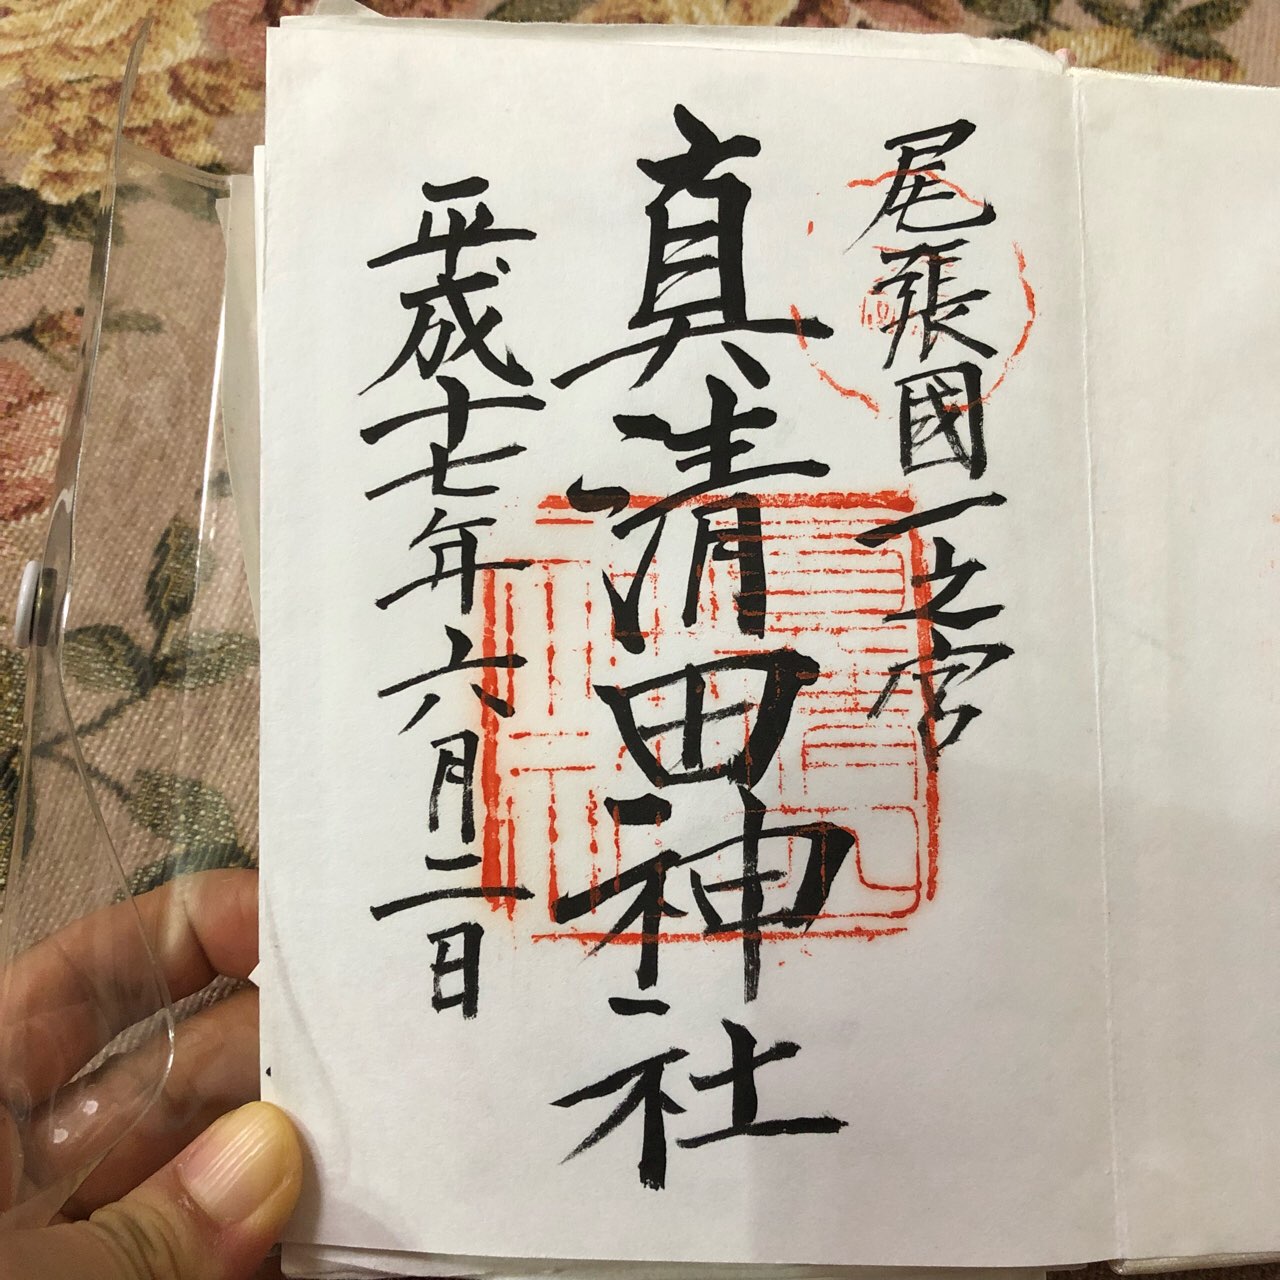 尾張國一之宮
真清田神社
平成十七年六月二日